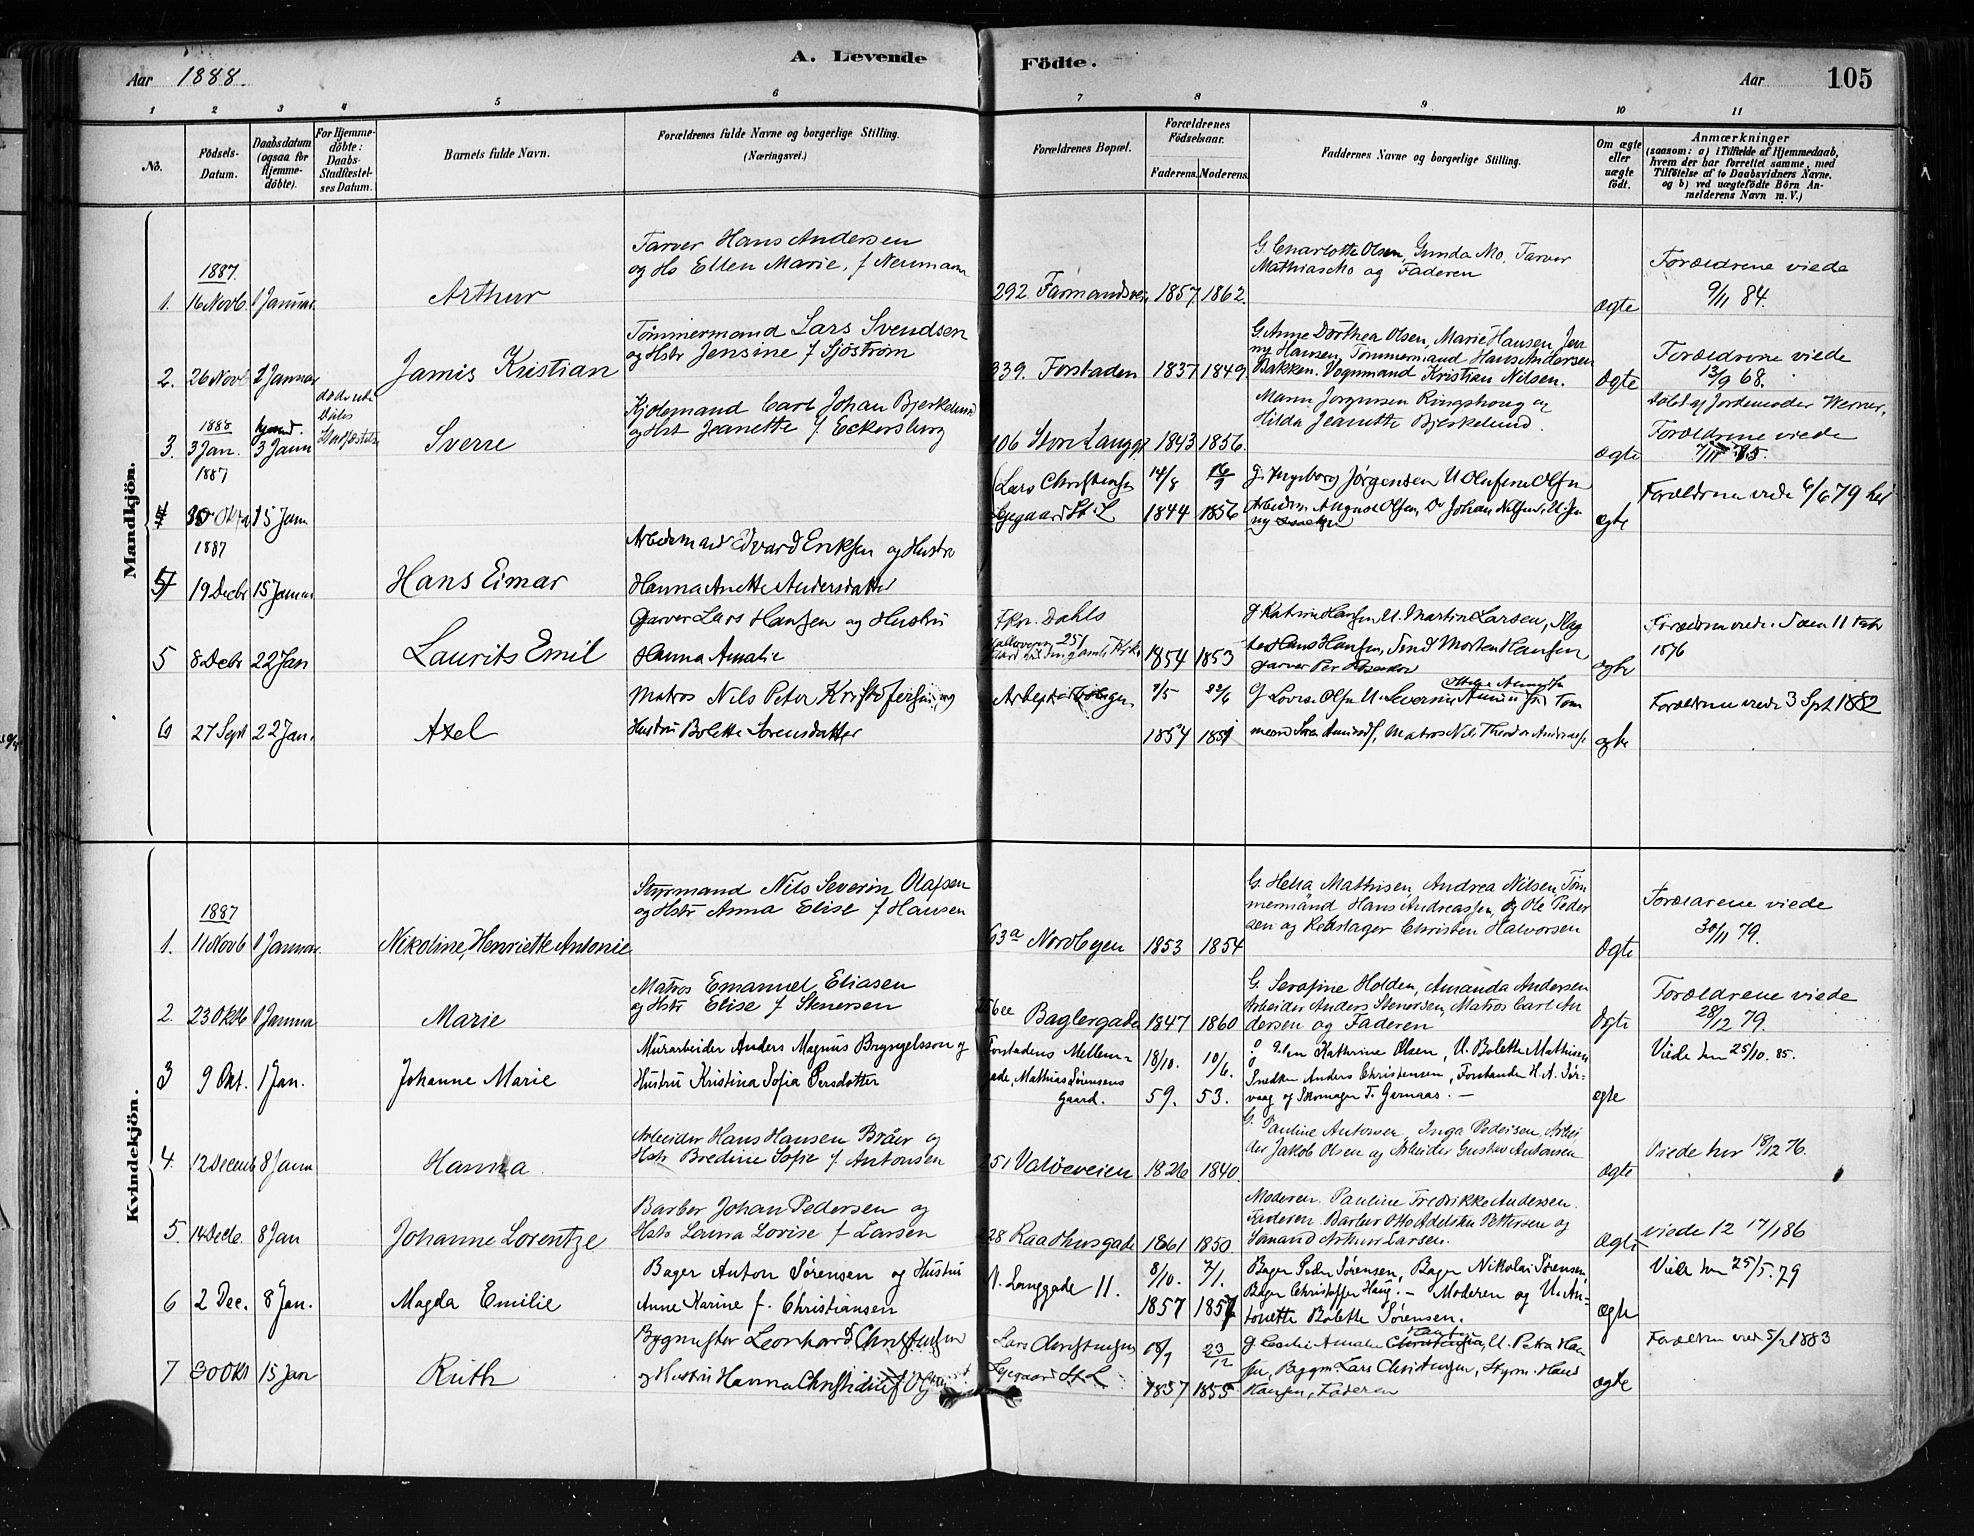 A. Levende Födte.
Aar 1888.
Aar 105
1 2 3 4 5 6 7 8 9 10 11
No.
Födsels-Datum.
Daabsdatum (ogsaa for Hjemme-döbte).
For Hjemme-döbte: Daabs-Stadfestelses Datum.
Barnets fulde Navn.
Forældrenes fulde Navne og borgerlige Stilling. (Næringsvei.)
Forældrenes Bopæl.
Forældrenes Födselsaar.
Faderens. Moderens.
Faddernes Navne og borgerlige Stilling.
Om ægte eller uægte födt.
Anmærkninger
(saasom: a) i Tilfælde af Hjemmedaab, hvem der har forrettet samme, med Tilföielse af to Daabsvidners Navne. og b) ved uægtefödte Börn Anmelderens Navn m. V.)
Mandkjön.
1887.
1. 16 Novb. 1 Januar
Arthur
Farver Hans Andersen
og Hs Ellen Marie, f Neumann
292 Farmandsvei 1857 1862.
G. Charlotte Olsen, Gunda Mo. Farver
Mathias Mo og Faderen
ægte
Forældrene viede
9/11 84.
2. 26 Novb 1 Januar
Jamis Kristian
Tømmermand Lars Svendsen
og Hstr Jensine f Sjöström
339. Forstaden 1837 1849
G. Anne Dorthea Olsen, Marie Hansen, Jen
ny Hansen, Tømmermand Hans Andersen
Bakken. Vognmand Kristian Nilsen.
ægte
Forældrene viede
13/9 68.
1888
3. 3 Jan. 3 Jann
Sverre
Carl Johan Bjerkelund
og Hst Jeanette f. Eckersberg
106 Stor Langgt 1843 1856.
Mann Jørgensen Ringshoug og
Hilda Jeanette Bjerkelund.
ægte
døbt af Jordemoder Werner,
Forældrene viede
1887
4 30 Oktr 15 Jann
Lars Christensen
Lgegaard St. L
14/8 16/9
1844 1856
G. Ingeborg Jørgensen U Olufine Olsen
Arbeidsm August Olsen, Do Johan Nilsen, U. Jen
ny
ægte
Forældrene viede 6/6 79 her
1887
5 19 Decbr 15 Januar
Hans Eimar
Arbeidsmand Edvard Eriksen og Hustru
Hanna Anette Andersdatter
5 8 Decbr 22 Jan
Laurits Emil
Garver Lars Hansen og Hustru
Hanna Amalie
Fkn. Dahls
1854 1853
G Katrine Hansen U. Martin Larsen, Slag
ter Hans Hansen, Smed Morten Hansen
garver Per
ægte
1876
6 27 Sept 22 Jan.
Axel
Matros Nils Peter Kristofersen, og
Hustru Bolette Sørensdatter
7/5
1854 1851
G Lovise Olsen U Severine Amundsen Tøm
mermd Søren Amundsen, Matros Nils Theodor Andreassen
ægte
Forældrene viede 3 Sept 1882
Kvindekjön.
1887
1. 11 Novb 1 Januar
Nikoline, Henriette Antonie
Styrmand Nils Severin Olafsen
og Hstr Anna Elise f Hansen
63a Nordbyen 1853 1854
G. Helia Mathisen, Andrea Nilsen, Töm
mermand Hans Andreassen, og Ole Peder
sen og Rebslager Christen Halvorsen
ægte
Forældrene viede
30/11 79.
2. 23 Oktb 1 Janua
Marie
Matros Emanuel Eliasen
og Hstr Elise f Stenersen
Baglergade 1847 1860
G. Serafine Holden, Amanda Andersen
Arbeider Anders Stenersen, Matros Carl An
dersen og Faderen
ægte
Forældrene viede
28/12 79.
3 9 Okt. 1 Jan.
Johanne Marie
Murarbeider Anders Magnus Bryngelsson og
Hustru Kristina Sofia Persdotter
Forstadens Mellem-
gade, Mathias Sørensens
Gaard.
18/10. 10/6.
59. 53.
Kathrine Olsen, U. Bolette Mathisen
Snedker Anders Christensen, Forstander H. A. Sør-
vaag og Skomager T. Garnaas. –
ægte
Viede her 25/10. 85.
4. 12 Decemb 8 Janu
Hanna
Arbeider Hans Hansen Bråer og
Hstr Bredine Sofie f. Antonsen
251 Valöeveien 1826 1840.
G. Pauline Antonsen, Inga Pedersen, Arbei
der Jakob Olsen og Arbeider Gustav Antonsen
ægte
Viede her 18/12 76.
5. 14 Decb. 8 Jan
Johanne Lorentze
Barber Johan Pedersen og
Hstr Lovise f Larsen
228 Raadhusgade 1861 1850
Moderen. Pauline Fredrikke Andersen.
Faderen. Barber Otto Pettersen og
Sømand Arthur Larsen.
ægte
viede 12 17/1 86
6 2 Dec. 8 Jan.
Magda Emilie
Bager Anton Sørensen og Hustru
Anne Karine f. Christiansen
N. Langgade 11.
8/10. 7/1.
1857 1857
Bager Peder Sørensen, Bager Nikolai Sørensen,
Bager Christoffer Haug. – Moderen og U. An-
tonette Bolette Sørensen.
ægte
Viede her 25/5. 79
7 30 Okt 15 Jan
Ruth
Bygmester Leonhard Christensen
og Hustru Hanna
Lars Christensen
Lgegaard St. L
18/9 23/12
1857 1855
G Cecilie Amalie U. Petra Han
sen, Byggm. Lars Christensen, Styrm. Hans
Hansen, Faderen
ægte
Forældrene viede 5/2 1883